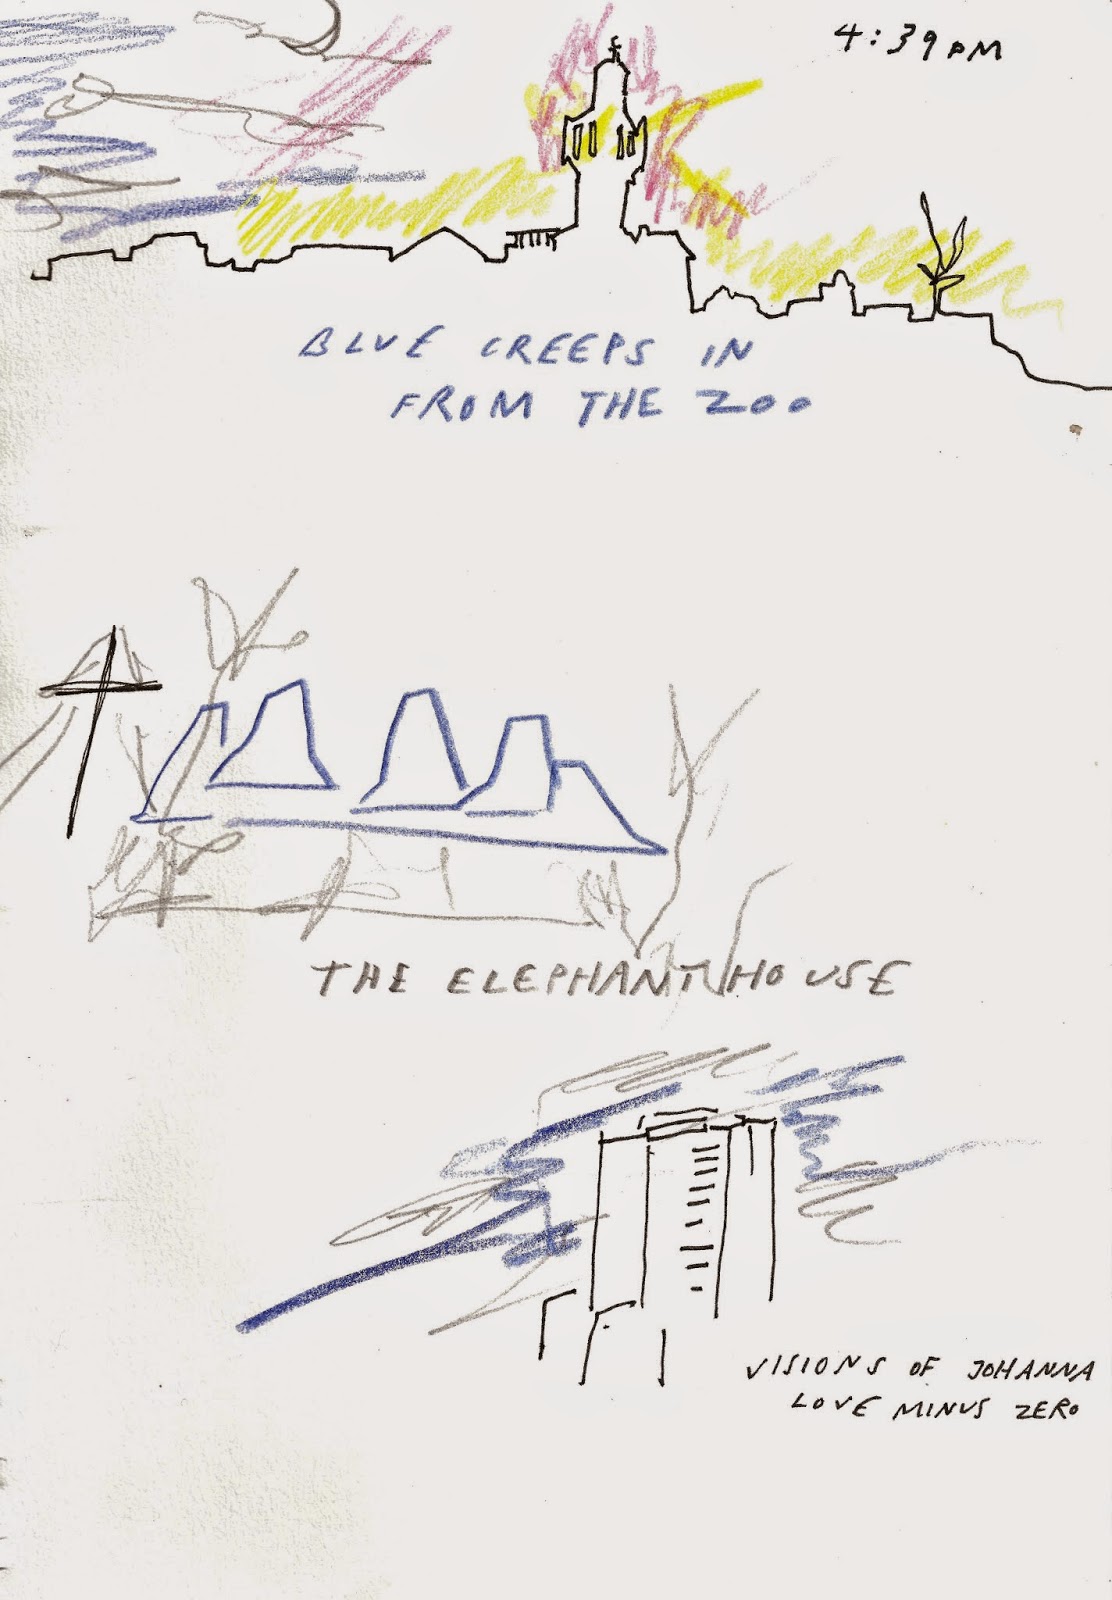 4:39 PM
BLUE CREEPS IN
FROM THE ZOO
THE ELEPHANT HOUSE
VISIONS OF JOHANNA
LOVE MINUS ZERO